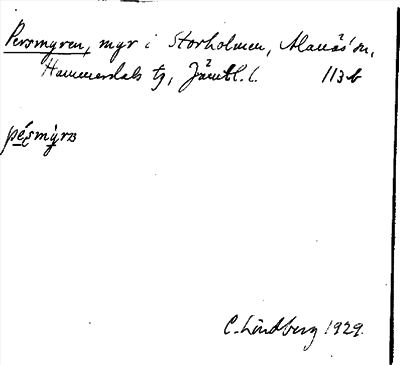 Persmyren, myr i Storholmen, Alanäs sn,
Hammerdals tg, Jämtl. l. 113b
pésmỳrɴ
C. Lindberg 1929.